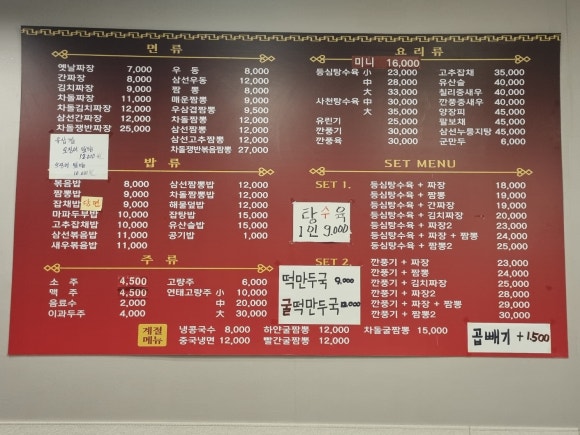 면 류
옛날짜장 7,000
간짜장 8,000
김치짜장 9,000
차돌짜장 11,000
차돌김치짜장 12,000
삼선간짜장 12,000
차돌쟁반짜장 25,000
우 동 8,000
삼선우동 12,000
짬 뽕 8,000
매운짬뽕 9,000
우삼겹짬뽕 9,500
차돌짬뽕 12,000
삼선짬뽕 12,000
삼선고추짬뽕 12,000
차돌쟁반볶음짬뽕 27,000
밥 류
볶음밥 8,000
짬뽕밥 9,000
잡채밥 9,000
마파두부밥 10,000
고추잡채밥 10,000
삼선볶음밥 11,000
새우볶음밥 11,000
삼선짬뽕밥 12,000
차돌짬뽕밥 12,000
해물덮밥 12,000
잡탕밥 15,000
유산슬밥 15,000
공기밥 1,000
주 류
소 주 4,500
맥 주 4,500
음료수 2,000
이과두주 4,000
고량주 6,000
연태고량주 小 10,000
中 20,000
大 30,000
계절
메뉴
냉콩국수 8,000 하얀굴짬뽕 12,000 차돌굴짬뽕 15,000
중국냉면 12,000 빨간굴짬뽕 12,000
요 리 류
미니 16,000
등심탕수육 小 23,000
中 28,000
大 33,000
사천탕수육 中 30,000
大 35,000
유린기 25,000
깐풍기 30,000
깐풍육 30,000
고추잡채 35,000
유산슬 40,000
칠리중새우 40,000
깐풍중새우 40,000
양장피 45,000
팔보채 45,000
삼선누룽지탕 45,000
군만두 6,000
SET MENU
SET 1.
등심탕수육 + 짜장 18,000
등심탕수육 + 짬뽕 19,000
등심탕수육 + 간짜장 19,000
등심탕수육 + 김치짜장 20,000
등심탕수육 + 짜장2 23,000
등심탕수육 + 짜장 + 짬뽕 24,000
등심탕수육 + 짬뽕2 25,000
탕수육
1인 9,000
SET 2.
깐풍기 + 짜장 23,000
깐풍기 + 짬뽕 24,000
깐풍기 + 김치짜장 25,000
깐풍기 + 짜장2 28,000
깐풍기 + 짜장 + 짬뽕 29,000
깐풍기 + 짬뽕2 30,000
떡만두국 9,000
굴떡만두국
곱빼기 + 1,500